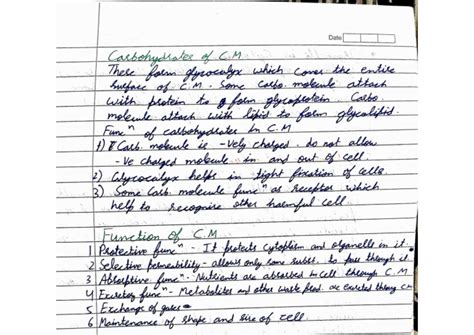 Date
Carbohydrates of C.M
These form glycocalyx which cover the entire
surface of C.M. Some Carbo. molecule attach
with protein to form glycoprotein. Carbo.
molecule attach with lipid to form glycolipid.
Funcⁿ of carbohydrates In C.M
1) Carb. molecule is -Vely charged. do not allow
-Ve charged molecule in and out of cell.
2) Glycocalyx helps in tight fixation of cells
3) Some Carb molecule funcⁿ as receptor which
help to recognise other harmful cell.
Function of C.M
1 Protective funcⁿ - It protects cytoplasm and organelles in it.
2 Selective permeability - allows only some subst. to pass through it
3 Absorptive funcⁿ - Nutrients are absorbed in cell through C.M
4 Excretory funcⁿ - Metabolites and other waste prod. are excreted through C.M
5 Exchange of gases
6 Maintenance of shape and size of cell.